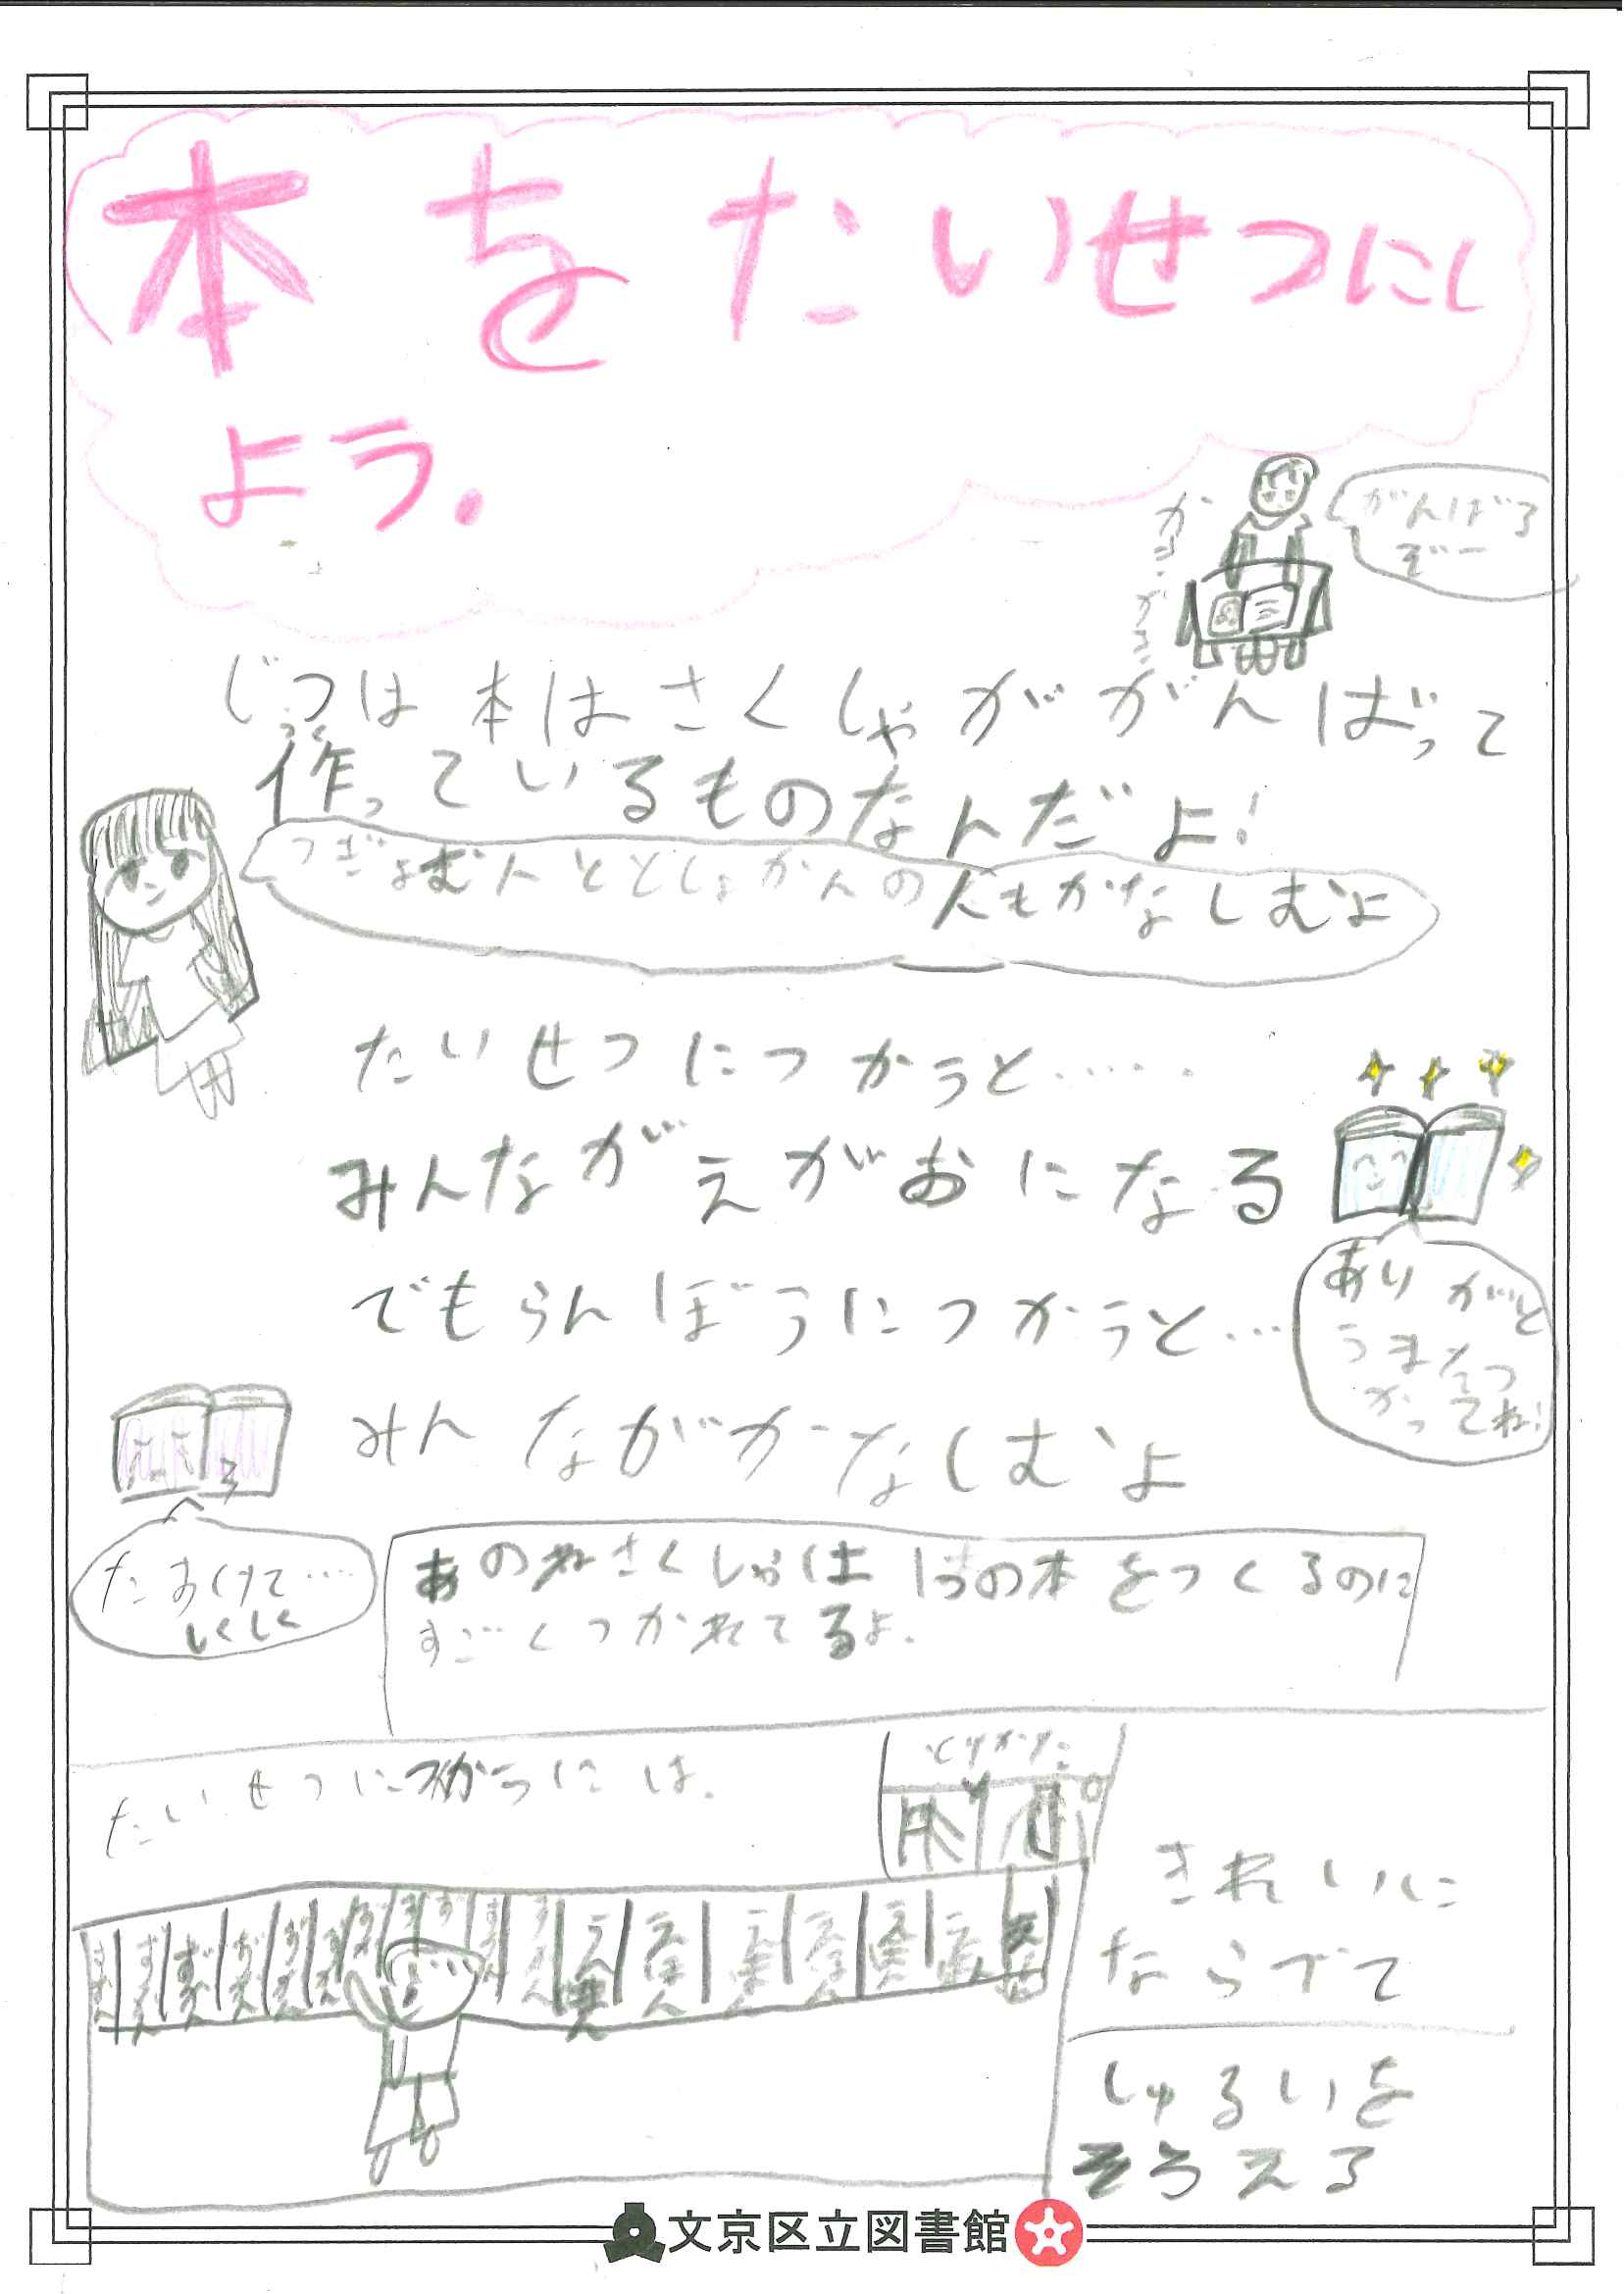 本をたいせつにし
よう.
がんばる
ぞー
カキ
カキ
じつは本はさくしゃががんばって
つく
作っているものなんだよ!
つぎよむ人ととしょかんの人もかなしむよ
たいせつにつかうと……
みんながえがおになる
でもらんぼうにつかうと…
ありがと
うまたつ
かってね!
みんながかなしむよ
たすけて….
しくしく
あのねさくしゃは1つの本をつくるのに
すごくつかれてるよ.
たいせつにつかうには.
とりかた
きれいに
ならべて
しゅるいを
そろえる
文京区立図書館